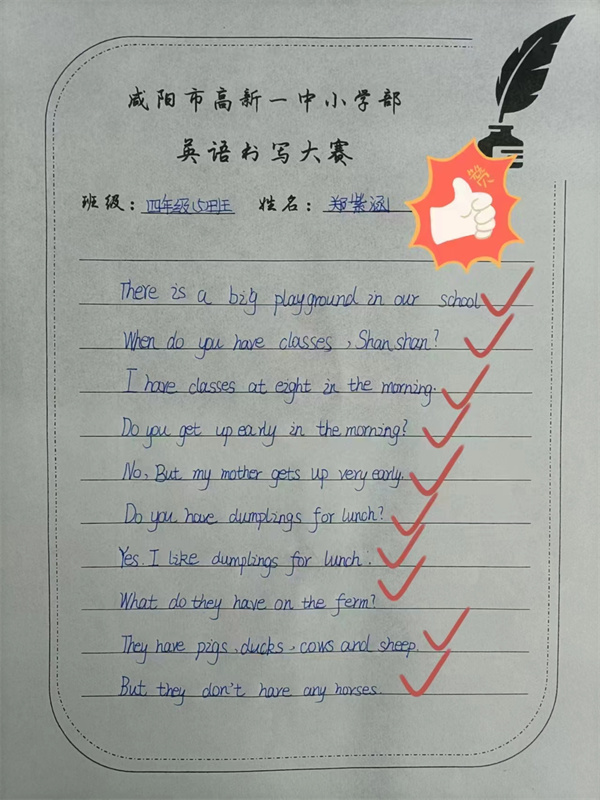 咸阳市高新一中小学部
英语书写大赛
班级：四年级(5)班 姓名：郑紫涵
赞
There is a big playground in our school
When do you have classes , Shan shan?
I have classes at eight in the morning.
Do you get up early in the morning?
No, But my mother gets up very early.
Do you have dumplings for lunch?
Yes. I like dumplings for lunch.
What do they have on the ferm?
They have pigs、ducks、cows and sheep.
But they don't have any horses.